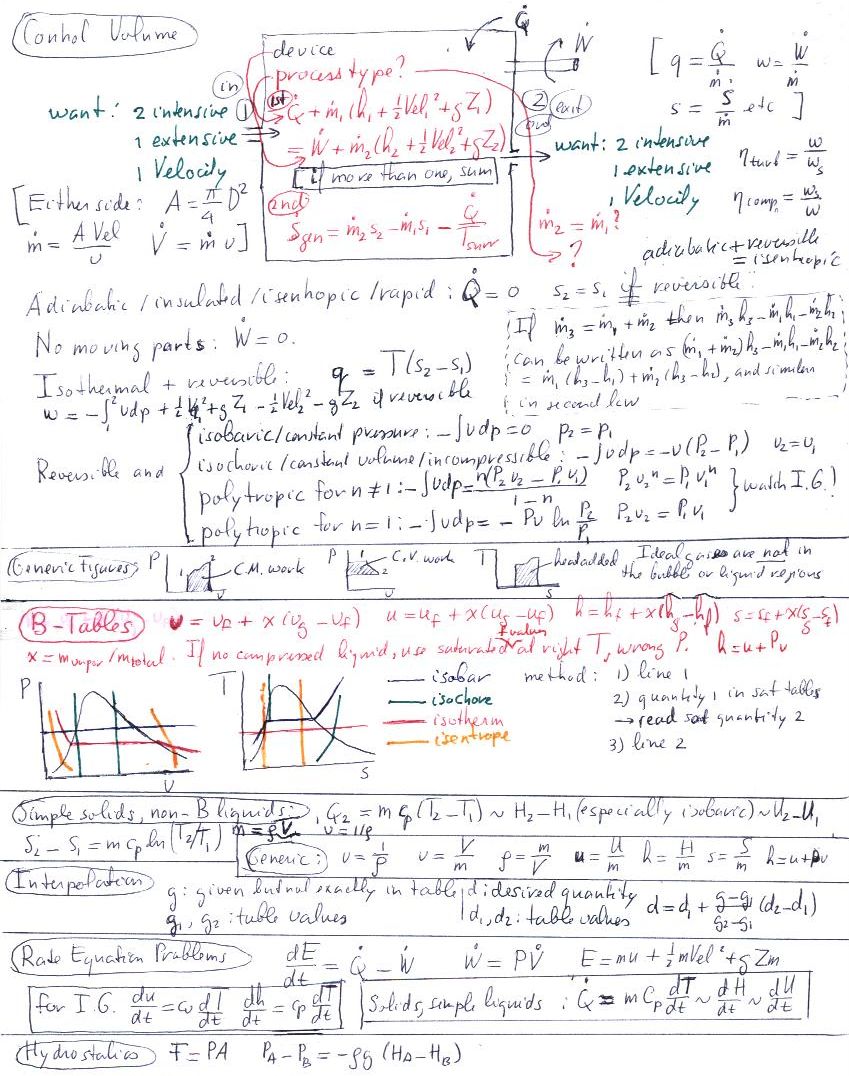 Control Volume
Q̇
Ẇ
device
process type?
[ q = Q̇/ṁ   w = Ẇ/ṁ
s = Ṡ/ṁ etc ]
(in)
want: 2 intensive ①
1 extensive
1 Velocity
(1st) Q̇ + ṁ₁(h₁ + ½Vel₁² + gZ₁)
= Ẇ + ṁ₂(h₂ + ½Vel₂² + gZ₂)
[if more than one, sum
(2nd)
Ṡgen = ṁ₂s₂ − ṁ₁s₁ − Q̇/Tsurr
② (exit)
want: 2 intensive
1 extensive
1 Velocity
ṁ₂ = ṁ₁?
?
ηturb = w/ws
ηcomp = ws/w
[Either side: A = π/4 D²
ṁ = A Vel/υ   V̇ = ṁ υ]
adiabatic + reversible
= isentropic
Adiabatic / insulated / isentropic / rapid : Q̇ = 0   s₂ = s₁ if reversible
No moving parts: Ẇ = 0.
Isothermal + reversible: q = T(s₂ − s₁)
w = −∫₁²υdp + ½Vel₁² + gZ₁ − ½Vel₂² − gZ₂ if reversible
If ṁ₃ = ṁ₁ + ṁ₂ then ṁ₃h₃ − ṁ₁h₁ − ṁ₂h₂
can be written as (ṁ₁ + ṁ₂)h₃ − ṁ₁h₁ − ṁ₂h₂
= ṁ₁(h₃ − h₁) + ṁ₂(h₃ − h₂), and similar
in second law
Reversible and
isobaric/constant pressure: −∫υdp = 0   P₂ = P₁
isochoric/constant volume/incompressible: −∫υdp = −υ(P₂ − P₁)   υ₂ = υ₁
polytropic for n≠1: −∫υdp = n(P₂υ₂ − P₁υ₁)/(1−n)   P₂υ₂ⁿ = P₁υ₁ⁿ
polytropic for n=1: −∫υdp = −Pυ ln P₂/P₁   P₂υ₂ = P₁υ₁
} watch I.G.!
Generic Figures: P 1 2 υ C.M. work   P 1 2 υ C.V. work   T s heat added   Ideal gases are not in
the bubble or liquid regions
B-Tables   υ = υf + x(υg − υf)   u = uf + x(ug − uf)   h = hf + x(hg − hf)   s = sf + x(sg − sf)
x = mvapor/mtotal. If no compressed liquid, use saturated values at right T, wrong P.   h = u + Pυ
P υ
T s
isobar
isochore
isotherm
isentrope
method: 1) line 1
2) quantity 1 in sat tables
→ read sat quantity 2
3) line 2
Simple solids, non-B liquids: ₁Q₂ = m cp(T₂ − T₁) ~ H₂ − H₁ (especially isobaric) ~ U₂ − U₁
S₂ − S₁ = m cp ln(T₂/T₁)   m = ρV   υ = 1/ρ
Generic: υ = 1/ρ   υ = V/m   ρ = m/V   u = U/m   h = H/m   s = S/m   h = u + pυ
Interpolation   g: given but not exactly in table   d: desired quantity
g₁, g₂: table values   d₁, d₂: table values   d = d₁ + (g − g₁)/(g₂ − g₁) (d₂ − d₁)
Rate Equation Problems   dE/dt = Q̇ − Ẇ   Ẇ = PV̇   E = mu + ½mVel² + gZm
for I.G. du/dt = cv dT/dt   dh/dt = cp dT/dt   Solids, simple liquids : Q̇ = m Cp dT/dt ~ dH/dt ~ dU/dt
Hydrostatics   F = PA   PA − PB = −ρg (HA − HB)